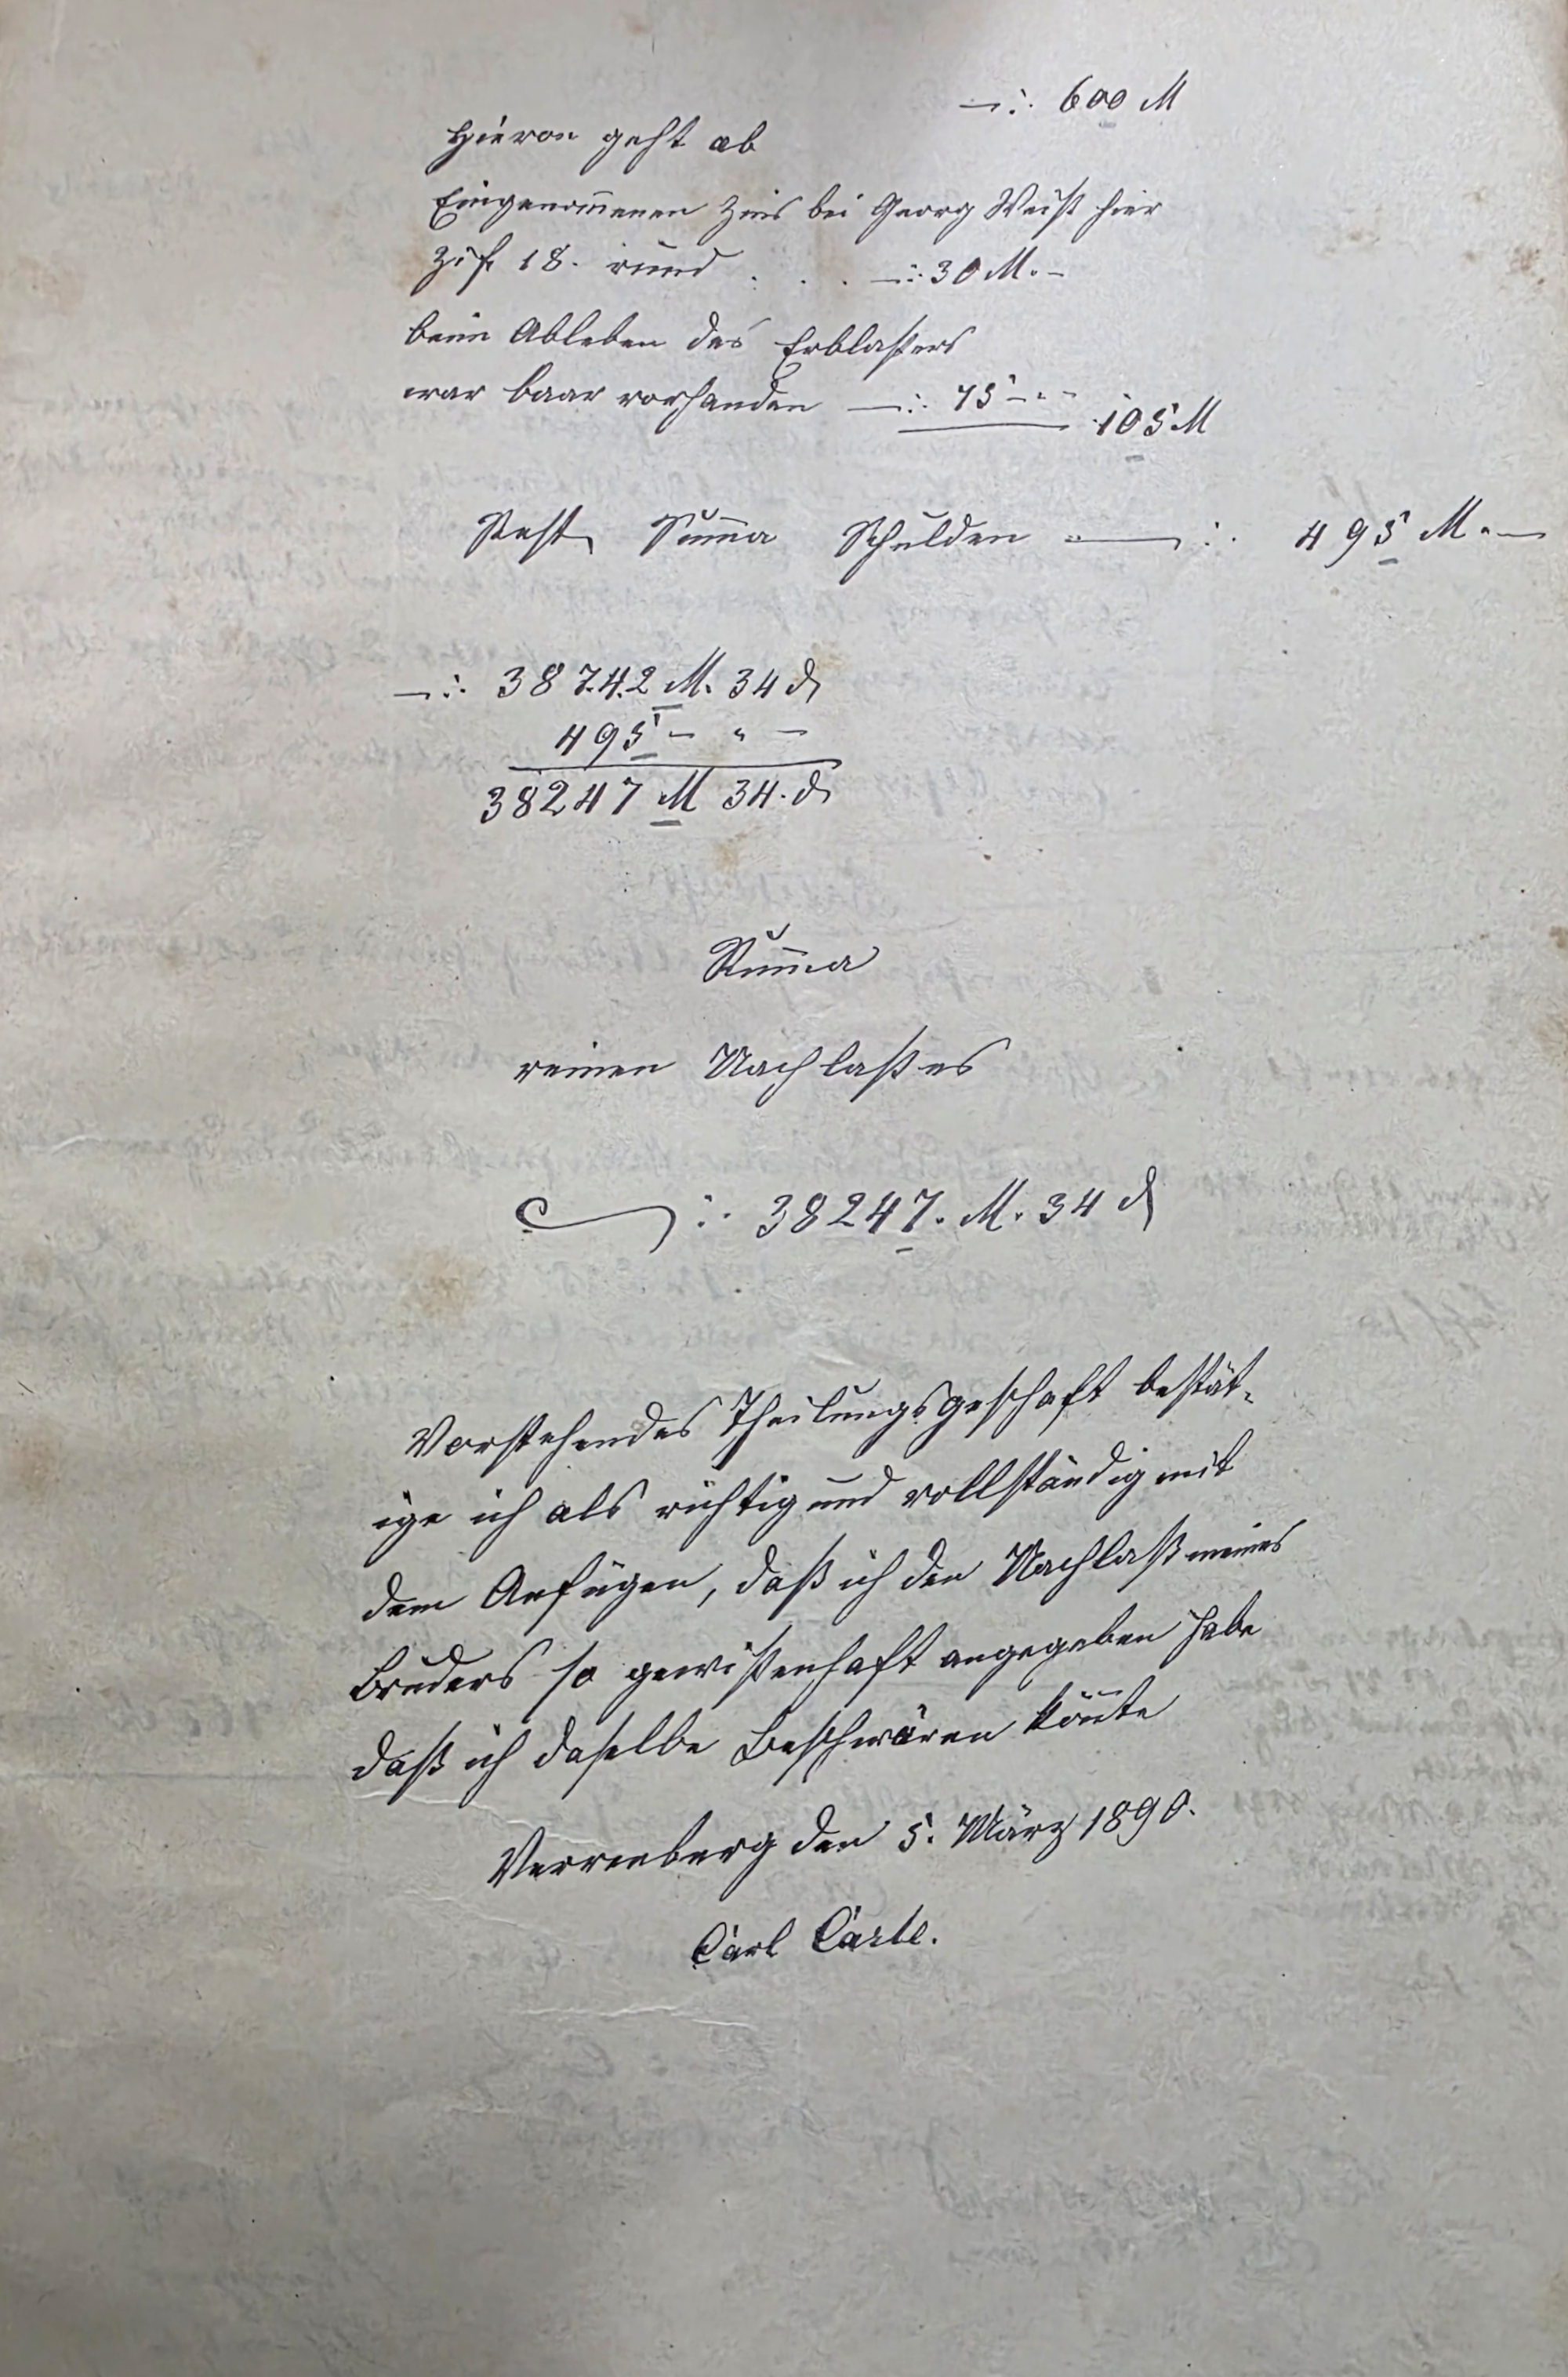 —:. 600 M
Hievon geht ab
Eingenom̅enen Zins bei Georg Weist hier
Zif. 18. rund . . . —:. 30 M. —
beim Ableben des Erblaßers
war baar vorhanden —:. 75 — " — 105 M
Rest Sum̅a Schulden —:. 495 M. —
—:. 38742 M. 34 ₰
495 — " —
38247 M 34. ₰
Sum̅a
reinen Nachlaßes
—:. 38247. M. 34 ₰
Vorstehendes Theilungsgeschäft bestät-
ige ich als richtig und vollständig mit
dem Anfügen, daß ich den Nachlaß meines
Bruders so gewißenhaft angegeben habe
daß ich daselbe Beschwören kön̅te
Verrenberg den 5. März 1890.
Carl Carle.